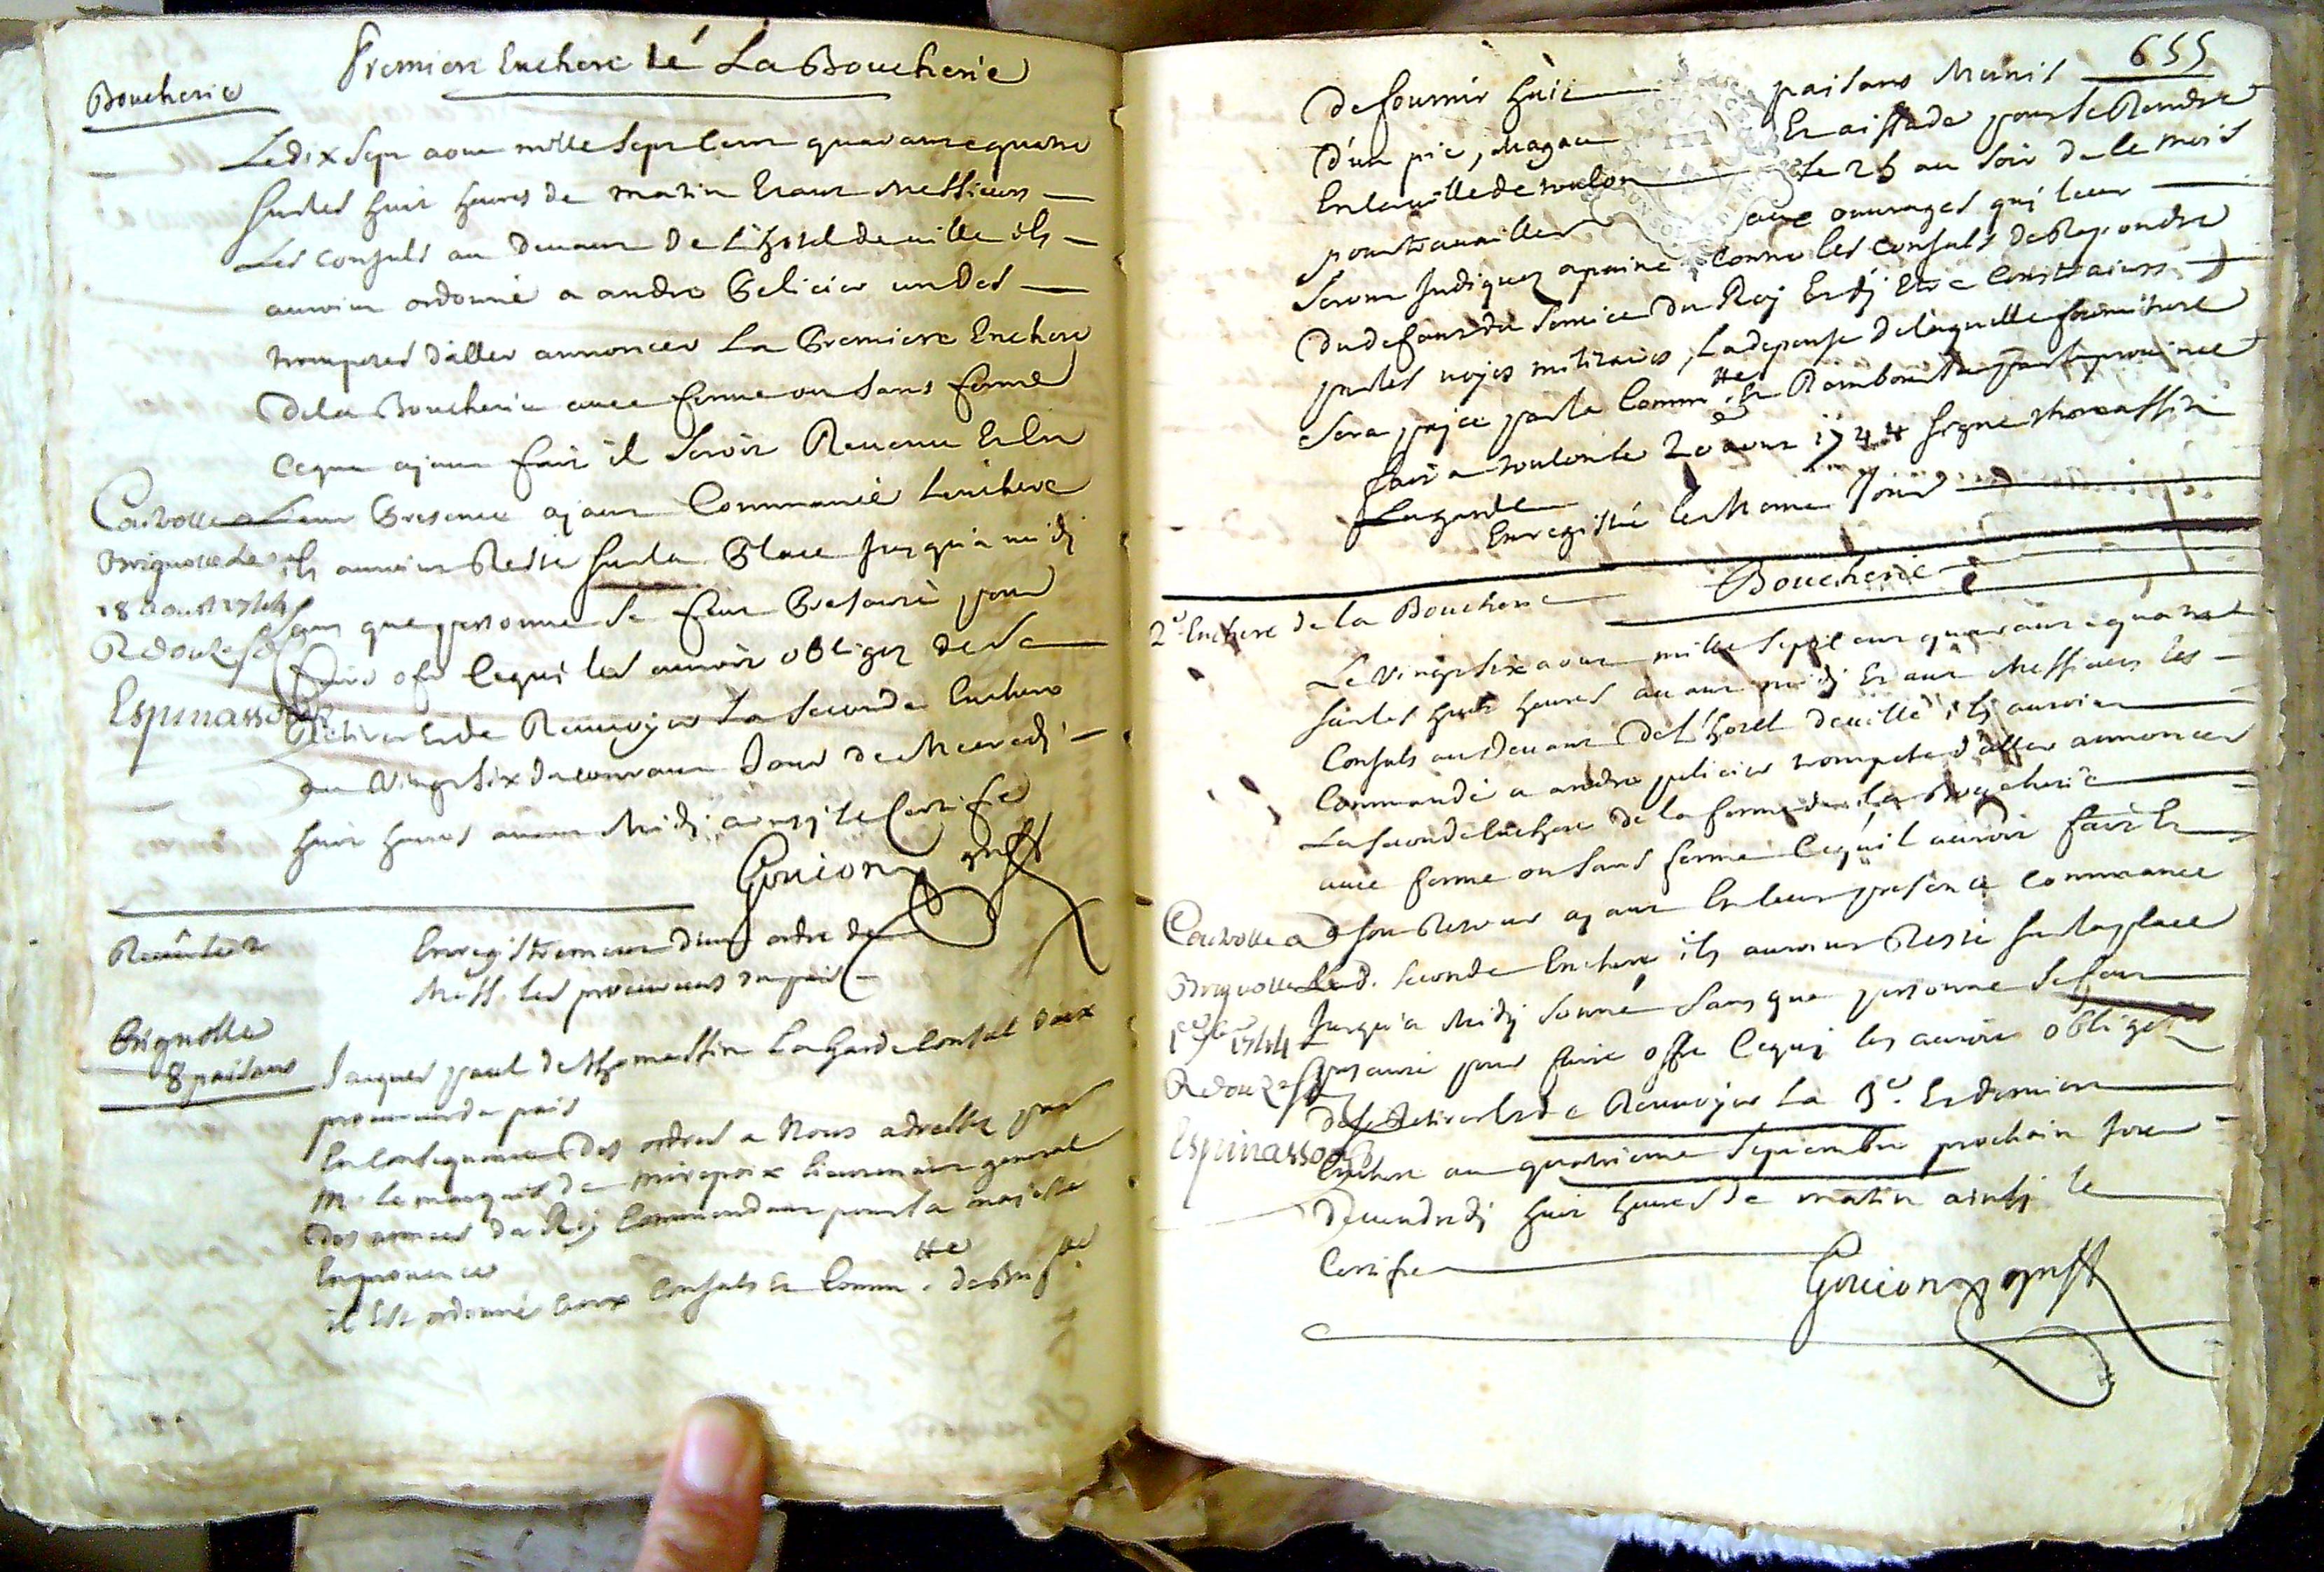 Boucherie
Premiere Enchere de La Boucherie
Le dix sept aout mille sept cent quarante quatre
sur les huit heures de matin Etant Messieurs
Les consuls au devant de L'hotel de ville ils
auroient ordonné a andre Pelicier un des
trompetes d'aller annoncer La Premiere Enchere
de la Boucherie avec ferme ou sans ferme
ce que ayant fait il seroit Revenu Et En
Leur Presence ayant Commancé Lenchere
ils auroient Resté sur la Place Jusqu'a midi
sans que personne se feut Presanté pour
faire ofre Ce qui les auroit obligez de se
Retirer Et de Renvoyer La Seconde Enchere
au Vingt six du courant Jour de Mecredi
huit heures avant Midi ainsy le Certifie
Goujon greff
Controllé a
Brignolle le
18 aout 1744
R douze s
Espinasson
Brignolle
8 paisans
Enregistrement d'un ordre de
Mess. les procureurs du pais
Jacques paul de Thomassin La Garde Consul d'aix
procureur du pais
En Consequance des ordres a Nous adressez par
M. le marquis de mirepoix lieutenant general
des armees du Roy Commandant pour sa majesté
En provence
il Est ordonné aux Consuls Et Comm.tté de
655
de fournir huit paisans Munis
d'un pic, Magau Et aissade pour se Rendre
En la ville de toulon le 25 au soir de ce mois
pour travailler aux ouvrages qui leur
seront Indiquez apaine Contre les Consuls de Repondre
du defaut du service du Roy Et dy Etre Constraints
par les voyes militaires, La depense de laquelle fourniture
sera payee par la Comm.tté Et Ramboursée par la province
fait a toulon le 20 aout 1744 signé thomassin
Lagarde
Enregistré le Meme Jour
2e Enchere de la Boucherie
Boucherie
Le Vingt six aout mille sept cent quarante quatre
sur les huit heures avant midi Etant Messieurs les
Consuls au devant de L'hotel de ville ils auroient
Commandé a andre pelicier trompete d'aller annoncer
La seconde Enchere de la ferme de la Boucherie
avec ferme ou sans ferme Ce qu'il auroit fait Et
a son Retour ayant En leur presence commancé
Lad. seconde Enchere ils auroient Resté sur la place
Jusqu'a Midy sonné sans que personne se feut
presanté pour faire offre Ce qui les auroit obligez
de se Retirer Et de Renvoyer La 3e Et derniere
Enchere au quatrieme Septembre prochain Jour
de vendredi huit heures de matin ainsi le
Certifie
Goujon greff
Controllé a
Brignolle le
1er 7bre 1744
R douze s
Espinasson